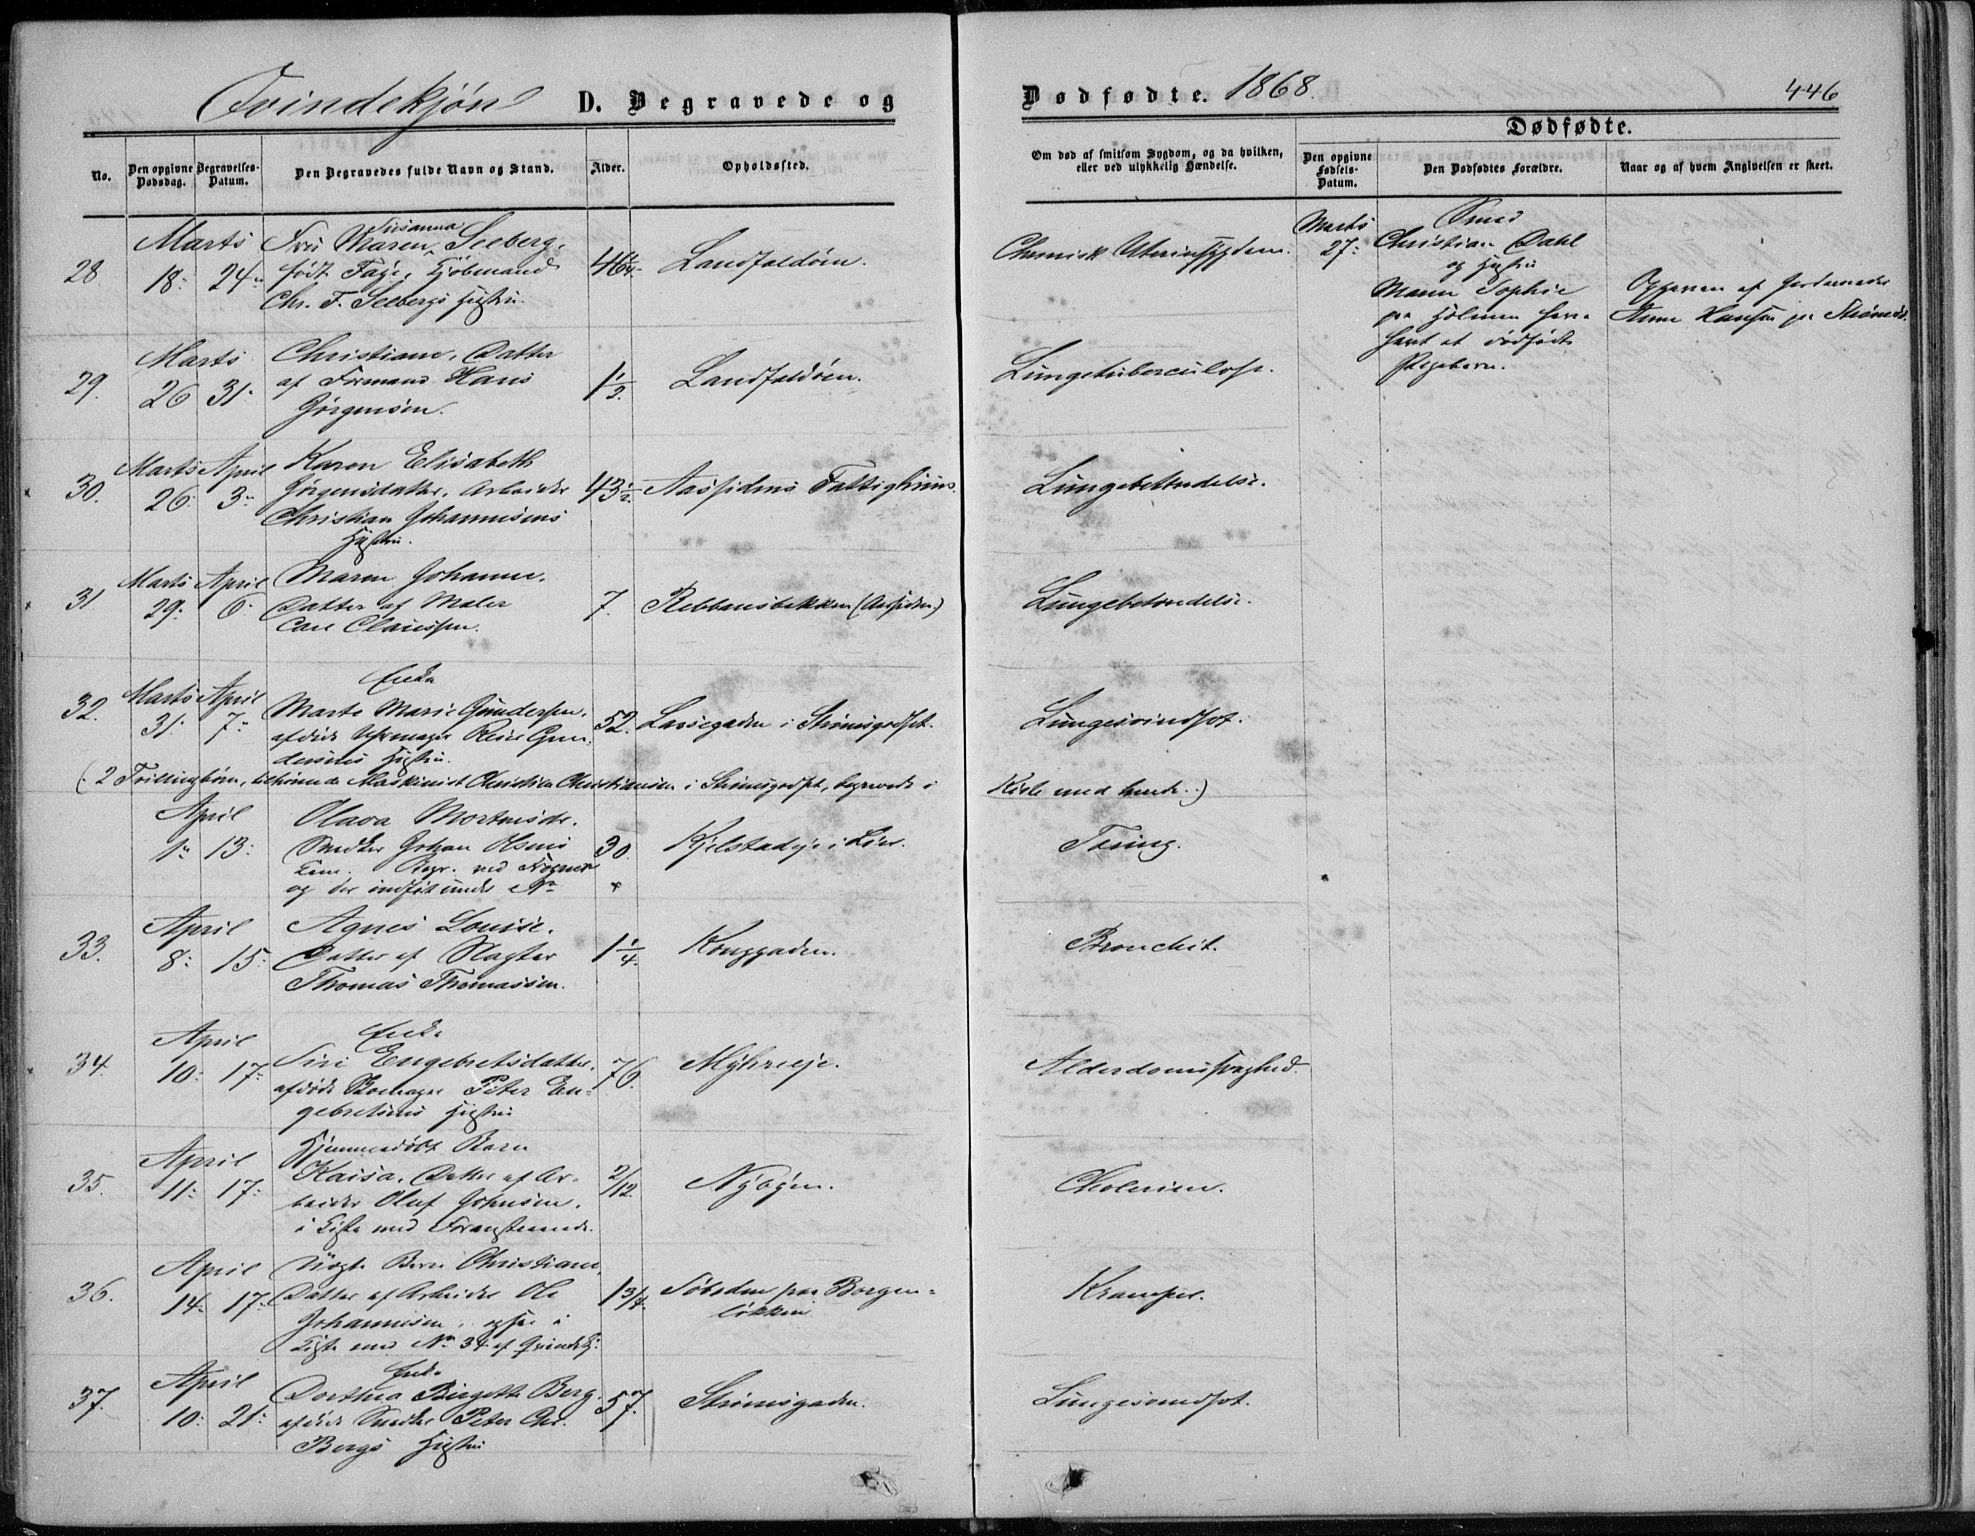 Qvindekjøn D. Begravede og
Dødfødte. 1868. 446
Dødfødte.
No.
Den opgivne Dødsdag.
Begravelses-Datum.
Den Begravedes fulde Navn og Stand.
Alder.
Opholdssted.
Om død af smitsom Sygdom, og da hvilken, eller ved ulykkelig Hændelse.
Den opgivne Fødsels-Datum.
Den Dødfødtes Forældre.
Naar og af hvem Angivelsen er skeet.
28. Marts 18. 24.
Fru Maren Susanna Seeberg,
født Faye, Kjøbmand
Chr. F. Seebergs Hustru.
Landfaldøen.
Marts 27.
Smed
Christian Dahl
og Hustru
Maren Sophie
paa Holmen have
havt et dødfødt
Pigebarn.
Opgaven af Jordemoder
Anne Hansen paa Strømsø.
29. Marts 26 31.
Christiane, Datter
af Formand Hans
Jørgensen.
1 1/2.
Landfaldøen.
Lungetuberculose.
30. Marts 26. April 3.
Karen Elisabeth
Jørgensdatter, Arbeider
Christian Johannesens
Hustru.
43 1/2.
Aassidens Fattighuus.
Lungebetændelse.
31 Marts 29. April 6.
Maren Johanne,
Datter af Maler
Carl Claussen.
7.
Rebbansbakken (Aassiden)
Lungebetændelse.
32. Marts 31. April 7.
Enke
Marte Marie Gundersen,
afdøde Uhrmager Gun-
dersens Hustru.
52.
i Strømsgodset.
Lungesvindsot.
(2 Tvillingbørn, tilhørende Maskinist Christian Christiansen i Strømsgodset, begravede i
Kiste med hende.)
April 1. 13.
Olava Mortensdr.
Snedker Johan Olsens
Kone. Begr. ved Frogner
og der indført under No
30.
Kjelstadeje i Lier.
Tæring.
33. April 8. 15.
Agnes Louise,
Datter af Slagter
Thomas Thomassen.
1 1/4.
Konggaden.
Bronchit.
34. April 10. 17.
Enke
Siri Engebretsdatter,
afdøde Peter En-
gebretsens Hustru
76.
Myhreeje.
Alderdomssvaghed.
35. April 11. 17.
Hjemmedøbt Barn
Kaisa, Datter af Ar-
beider Oluf Johnsen,
i Kiste med Foranstaaende.
2/12.
Nybyen.
Cholerine.
36. April 14. 17.
Uægte Barn Christiane,
Datter af Arbeider Ole
Johannesen, ogsaa i
Kiste med No 34 af Qvindekj.
1 3/4.
paa Borgen-
løkken
Krampe.
37. April 10. 21.
Enke
Dorthea Birgette Berg,
afdøde Snedker Peter Chr.
Bergs Hustru
57.
Strømsgaden.
Lungesvindsot.